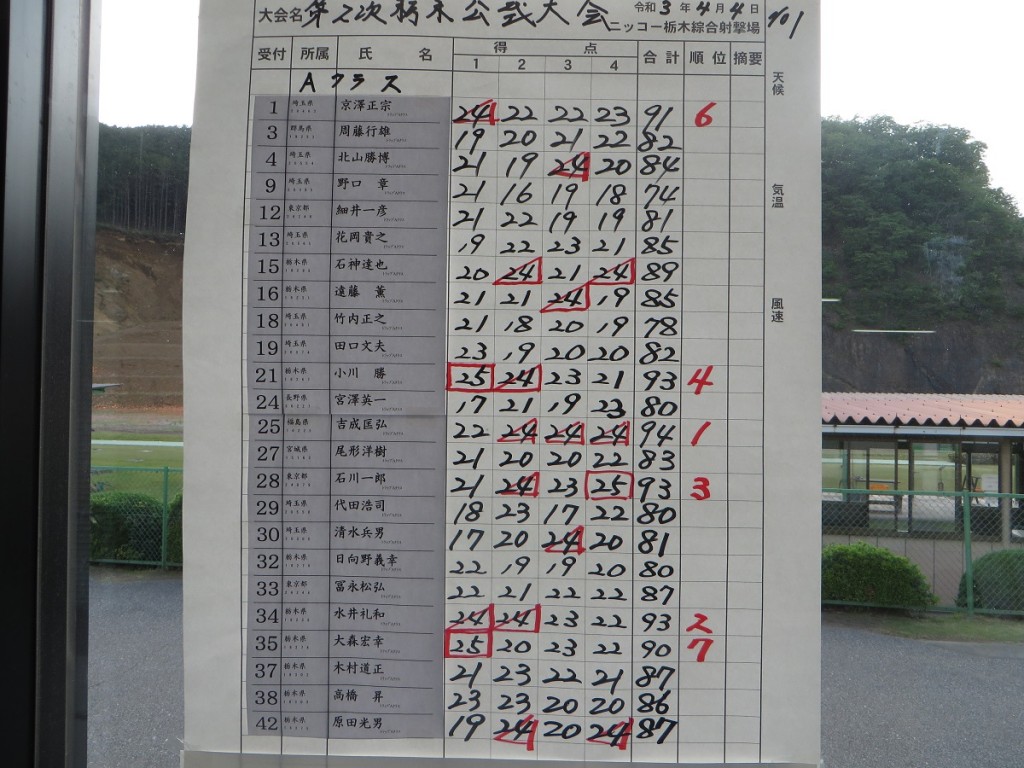 大会名 第2次栃木公式大会 令和3年4月4日
ニッコー栃木綜合射撃場
受付 所属 氏名 得点 合計 順位 摘要
1 2 3 4
天候
Aクラス
1 埼玉県 京澤正宗 24 22 22 23 91 6
3 群馬県 周藤行雄 19 20 21 22 82
4 埼玉県 北山勝博 21 19 24 20 84
9 埼玉県 野口章 21 16 19 18 74
気温
12 東京都 細井一彦 21 22 19 19 81
13 埼玉県 花岡貴之 19 22 23 21 85
15 栃木県 石神達也 20 24 21 24 89
16 栃木県 遠藤薫 21 21 24 19 85
風速
18 埼玉県 竹内正之 21 18 20 19 78
19 埼玉県 田口文夫 23 19 20 20 82
21 栃木県 小川勝 25 24 23 21 93 4
24 長野県 宮澤英一 17 21 19 23 80
25 福島県 吉成匡弘 22 24 24 24 94 1
27 宮城県 尾形洋樹 21 20 20 22 83
28 東京都 石川一郎 21 24 23 25 93 3
29 埼玉県 代田浩司 18 23 17 22 80
30 埼玉県 清水兵男 17 20 24 20 81
32 栃木県 日向野義幸 22 19 19 20 80
33 東京都 冨永松弘 22 21 22 22 87
34 栃木県 水井礼和 24 24 23 22 93 2
35 栃木県 大森宏幸 25 20 23 22 90 7
37 栃木県 木村道正 21 23 22 21 87
38 栃木県 高橋昇 23 23 20 20 86
42 栃木県 原田光男 19 24 20 24 87